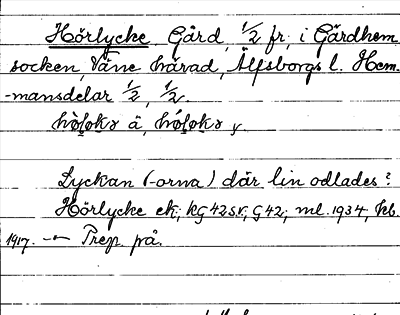 Hörlycke Gård, 1/2 fr, i Gärdhem
socken, Väne härad, Älfsborgs l. Hem-
-mansdelar 1/2, 1/2.
ä, y
Lyckan (-orna) där lin odlades?
Hörlycke ek; kG 42 s.v.; G 42; ml. 1934, kb
1917. — Prep. på.